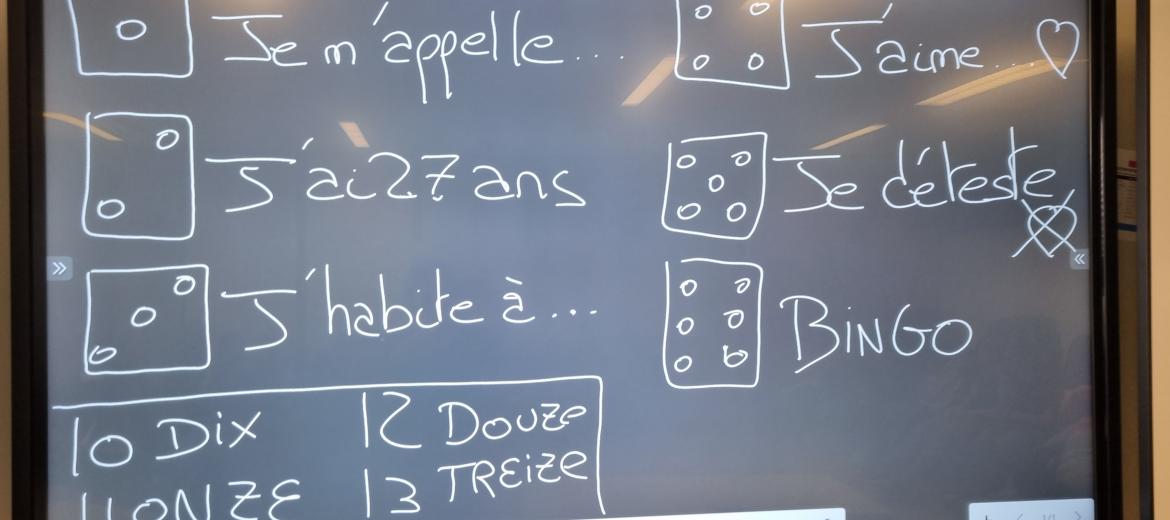 Je m'appelle...
J'ai 27 ans
J'habite à...
J'aime...
Je déteste
BiNGO
10 Dix
12 Douze
11 ONZE
13 TREize